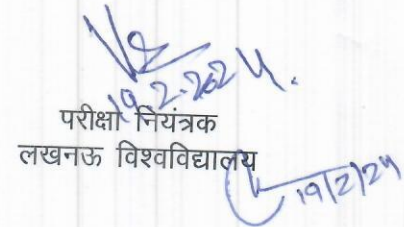 19.2.2024.
परीक्षा नियंत्रक
लखनऊ विश्वविद्यालय
19/2/24